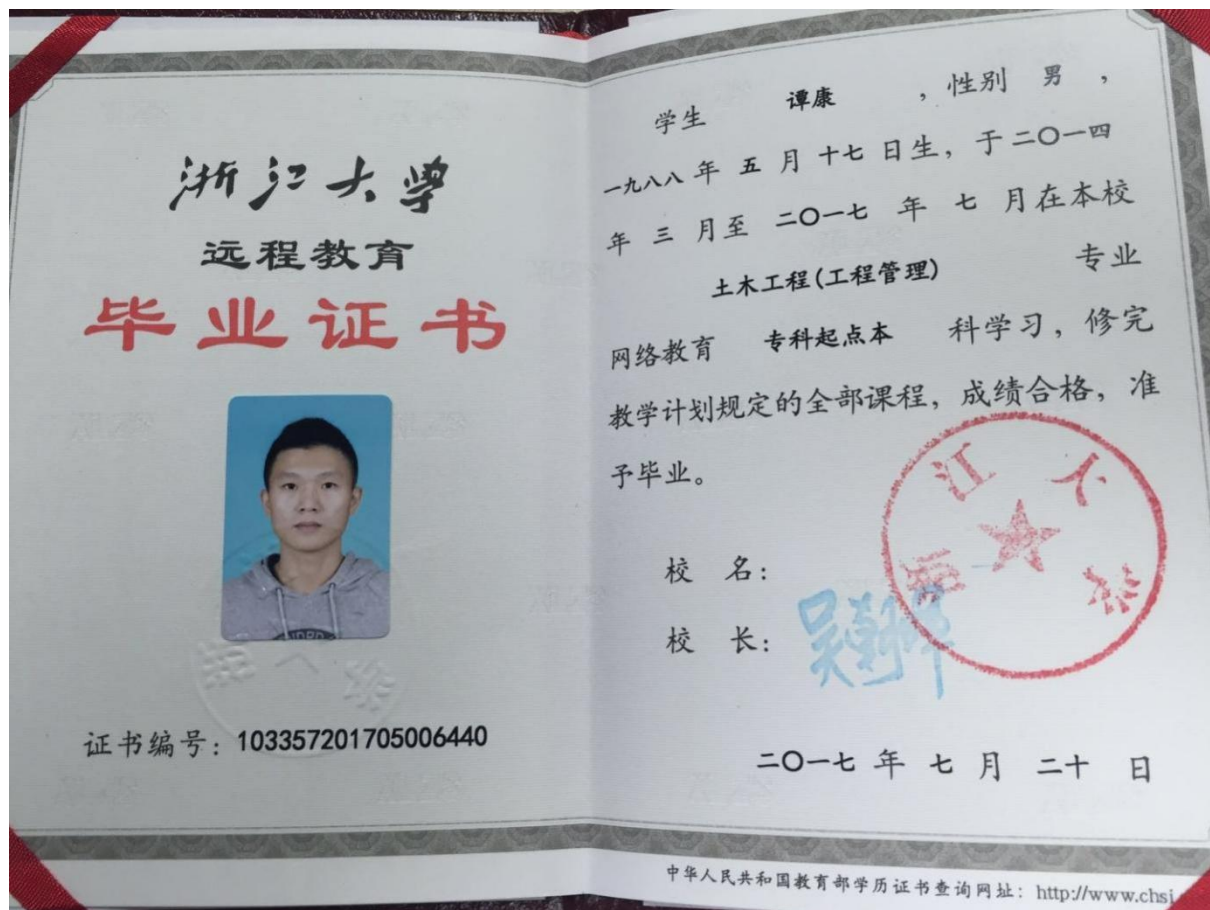 浙江大学
远程教育
毕业证书
证书编号：103357201705006440
学生 谭康 ，性别 男 ，
一九八八 年 五 月 十七 日生，于二〇一四
年 三 月至 二〇一七 年 七 月在本校
土木工程(工程管理) 专业
网络教育 专科起点本 科学习，修完
教学计划规定的全部课程，成绩合格，准
予毕业。
浙江大学
校 名：
校 长：
二〇一七 年 七 月 二十 日
中华人民共和国教育部学历证书查询网址：http://www.chsi